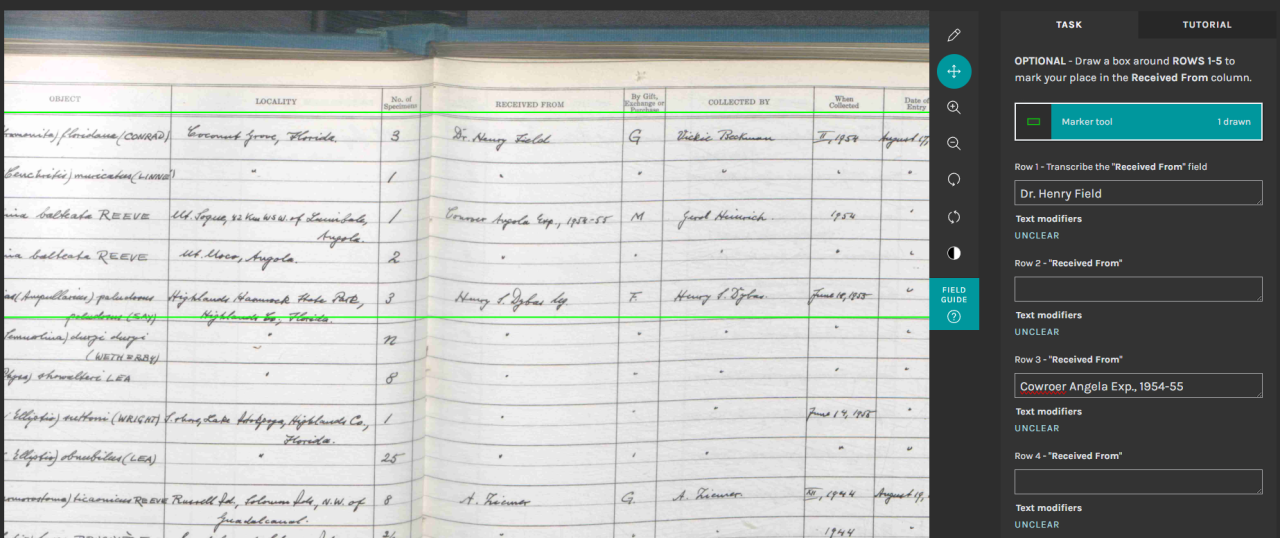 OBJECT LOCALITY No. of Specimens RECEIVED FROM By Gift, Exchange or Purchase COLLECTED BY When Collected Date of Entry
floridana (CONRAD) Coconut Grove, Florida. 3 Dr. Henry Field G Vickie Beekman II, 1954 August 17,
muricatus (LINNÉ) " 1 " " " " "
balteata REEVE Mt. Soque, 42 Km WSW. of Luimbale, 1 Angola Exp., 1954-55 M Gerd Heinrich. 1954 "
Angola.
balteata REEVE Mt. Moco, Angola. 2 " " " " "
(Ampullarius) paludosus Highlands Hammock State Park, 3 Henry S. Dybas F. Henry S. Dybas. June 18, 1955 "
paludosus (SAY) Highlands Co., Florida.
" n " " " " "
(WETHERBY)
showalteri LEA " 8 " " " " "
Elliptio) (WRIGHT) Lake Highlands Co., 1 " " " June 14, 1955 "
Florida.
Elliptio) (LEA) " 25 " " " " "
ticaonicus REEVE Russell Id., Solomon Ids., N.W. of 8 A. Ziemer G. A. Ziemer. XII, 1944 August 19,
Guadalcanal.
1944
TASK
TUTORIAL
OPTIONAL - Draw a box around ROWS 1-5 to
mark your place in the Received From column.
Marker tool 1 drawn
Row 1 - Transcribe the "Received From" field
Dr. Henry Field
Text modifiers
UNCLEAR
Row 2 - "Received From"
Text modifiers
UNCLEAR
Row 3 - "Received From"
Cowroer Angela Exp., 1954-55
Text modifiers
UNCLEAR
Row 4 - "Received From"
Text modifiers
UNCLEAR
FIELD
GUIDE